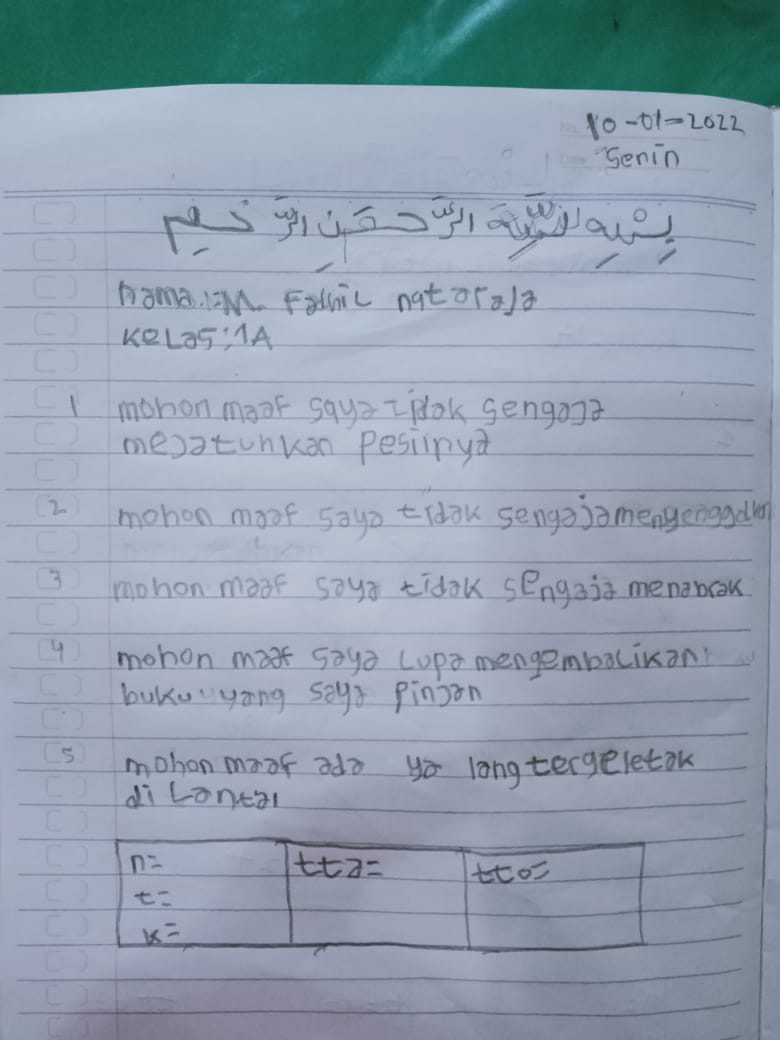 10-01-2022
Senin
بِسْمِ اللَّهِ الرَّحْمَنِ الرَّحِيمِ
nama:M. Fadhil
KeLas:1A
1 mohon maaf saya tidak sengaja
mejatuhkan
2 mohon maaf saya tidak sengaja
3 mohon maaf saya tidak sengaja menabrak
4 mohon maaf saya Lupa mengembaLikan
buku yang saya Pinjan
5 mohon maaf ada ya lang tergeletak
di Lantai
n= tta= tto=
t=
k=